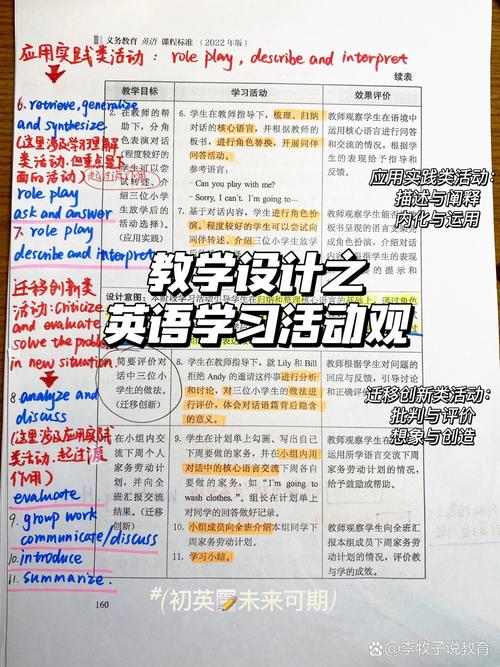 义务教育 英语 课程标准（2022年版）
应用实践类活动：role play, describe and interpret
续表
教学目标
学习活动
效果评价
6. retrieve, generalize
and synthesize
(这里涉及学习理解
类活动，但重点是下
面的活动)
起过渡作用
role play
ask and answer
7. role play
describe and interpret
2. 在教师的帮
助下，分角
色表演对话
(程度较好的
学生可以尝
试转述、介
绍三位小学
生放学后的
活动选择)。
(应用实践)
6. 学生在教师指导下，梳理、归纳
对话的核心语言，并根据教师的
板书，进行角色替换，开展同伴
问答活动。
参考语言：
– Can you play with me?
– Sorry, I can't. I'm going to...
7. 基于对话内容，学生进行角色扮
演。程度较好的学生可以尝试向
同伴转述、介绍三位小学生放
教师观察学生在语境中
运用核心语言进行问答
和交流的情况，根据学
生的表现给予指导和
反馈。
教师观察不同能力的学
生根据板书呈现的语言支架完
成角色扮演，介绍对话
内容
的提示和
应用实践类活动：
描述与阐释
内化与运用
教学设计之
英语学习活动观
设计意图：本阶段学习活动引导学生在归纳和整理核心语言的基础上，通过角色
迁移创新类
活动：Criticize
and evaluate
solve the problem
in new situation
8. analyze and
discuss
(这里涉及应用实践
类活动，起过渡
作用)
evaluate
9. group work
communicate/discuss
10. introduce
11. summarize.
简要评价对
话中三位小
学生的做法。
(迁移创新)
8. 学生在教师指导下，就 Lily 和 Bill
拒绝 Andy 的邀请这件事进行分析
和讨论，对三位小学生的做法进
行评价，体会对话语篇背后隐含
的意义。
教师根据学生对问题的
回应与反馈，引导讨论
和正确评价。
迁移创新类活动：
批判与评价
想象与创造
在小组内交
流下周个人
家务劳动计
划，并向全
班汇报交流
结果。
(迁移创新)
9. 学生在计划单上勾画、写出自己
下周要做的家务，并在小组内用
对话中的核心语言交流下周各自
要做的家务，如 “I'm going to
wash clothes.”。组长在计划单上
对同学的回答做好记录。
10. 小组成员向全班介绍本组同学下
周家务劳动计划。
11. 学习小结。
教师观察学生在小组内
运用所学语言交流家务
劳动计划的情况，
给予鼓励或帮助。
教师观察学生向全班汇
报本组成员下周家务劳
动计划的情况，评价教
与学的成效。
160
#(初英📝未来可期)
李牧子说教育